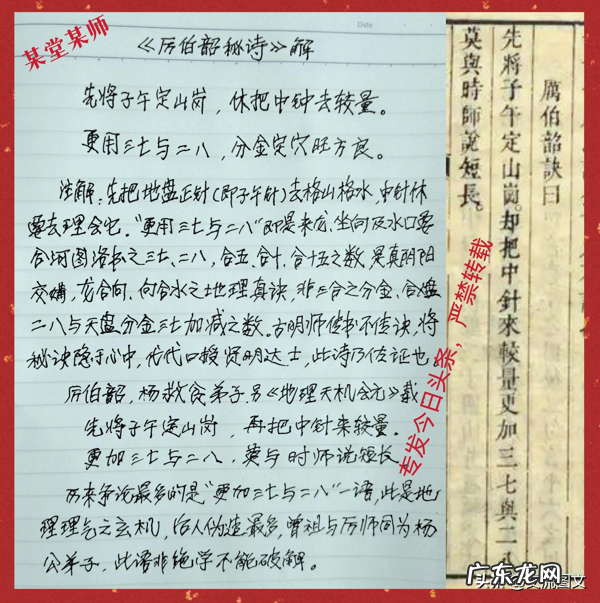 某堂某师
Date
《厉伯韶秘诗》解
先将子午定山岗，休把中钟去较量。
更用三七与二八，分金定穴旺方良。
注解：先把地盘正针(即子午针)去格山格水，中针休
要去理会它。“更用三七与二八”即是来龙、坐向及水口要
合河图洛书之三七、二八，合五、合十、合十五之数，是真阴阳
交媾，龙合向、向合水之地理真诀，非三合之分金、合盘
二八与天盘分金三七加减之数。古明师传书不传诀，将
秘诀隐于心中，代代口授贤明达士，此诗乃佐证也。
厉伯韶，杨救贫弟子。另《地理天机会元》载
先将子午定山岗，再把中针来较量。
更加三七与二八，莫与时师说短长。
历来争论最多的是“更加三七与二八”一语，此是地
理理气之玄机，后人伪造最多，曾祖与厉师同为杨
公弟子，此语非绝学不能破解。
专发今日头条，严禁转载
厲伯韶訣曰
先將子午定山崗。却把中針來較量更加三七與二八
莫與時師說短長。
广东龙网